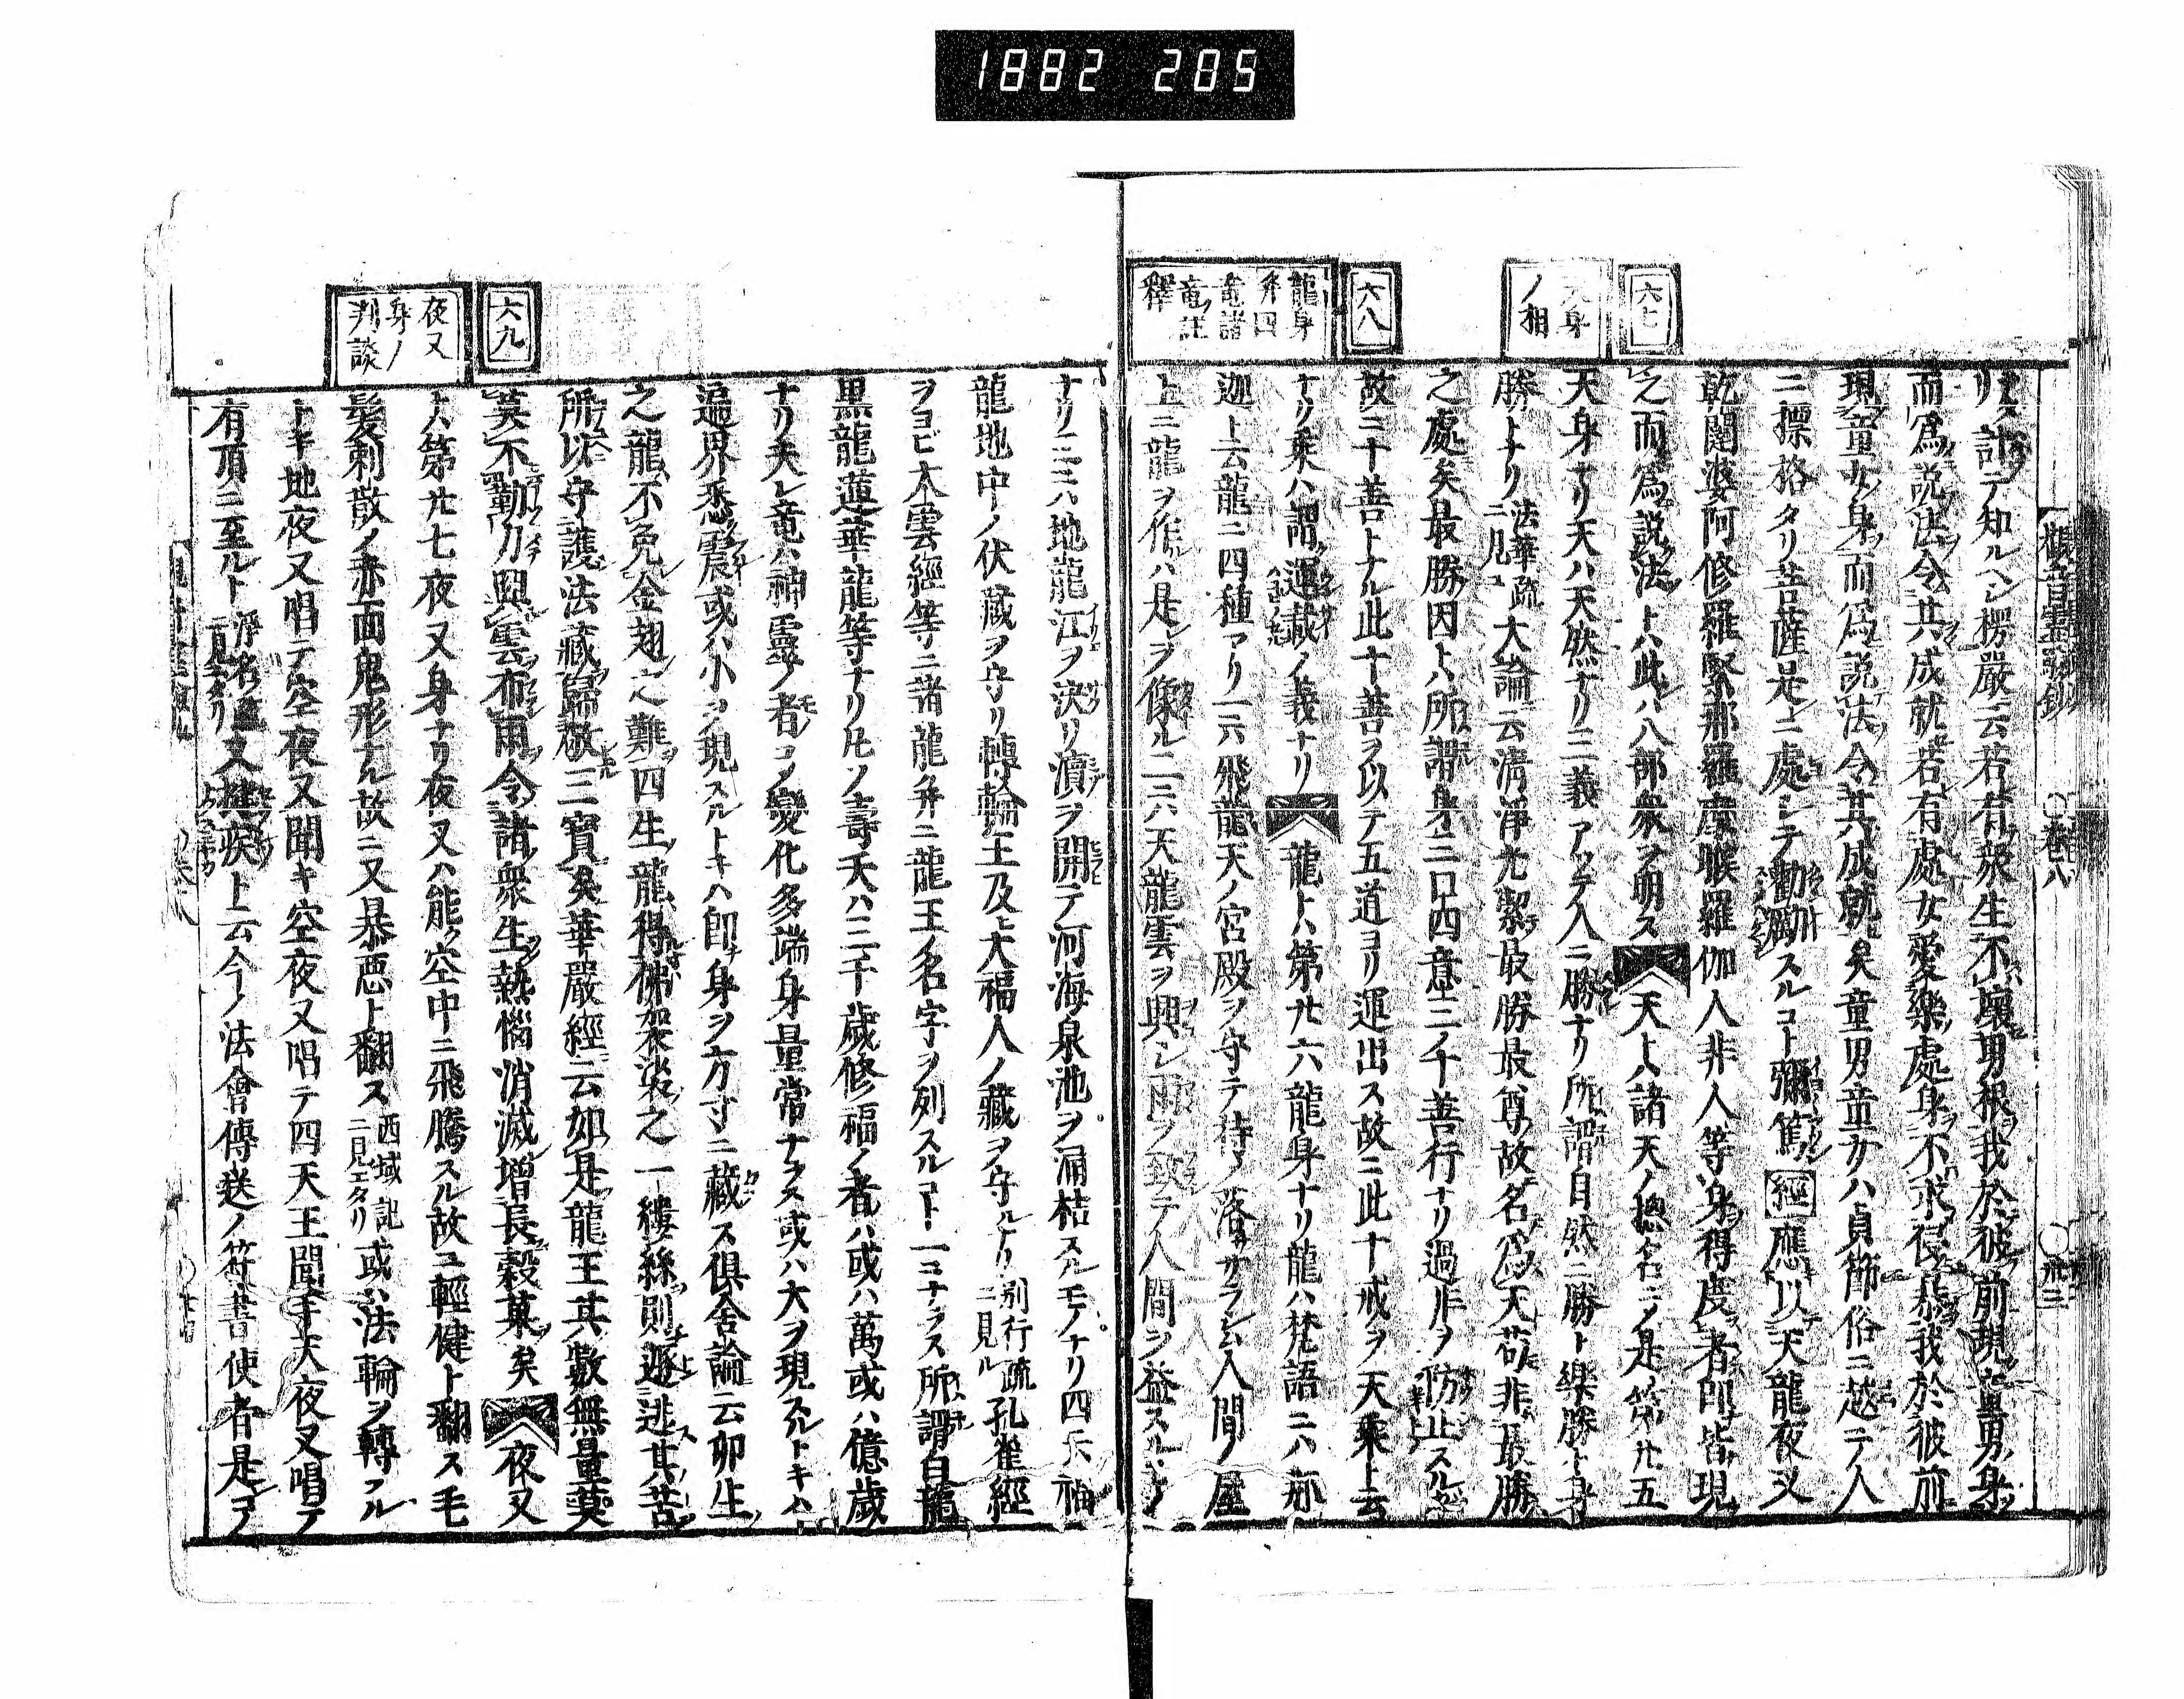 1882 285
六七
天身
ノ相
六八
龍身
并四
竜諸
竜註
釋
リ計テ知ルヘシ楞嚴云若有衆生不壞男根我於彼前現童男身
而爲説法令其成就若有處女愛樂處身不求侵暴我於彼前
現童女身而爲説法令其成就矣童男童女ハ貞節俗ニ越テ人
ニ摽格タリ菩薩是ニ處シテ勸勵スルコト彌篤經應以天龍夜叉
乾闥婆阿修羅緊那羅摩睺羅伽人非人等身得度者即皆現
之而爲説法トハ此ハ八部衆ヲ明ス天トハ諸天ノ摠名ニノ是第廿五
天身ナリ天ハ天然ナリ三義アッテ人ニ勝ナリ所謂自然ニ勝ト樂勝ト身
勝トナリ法華疏ニ見ユ大論云清淨光潔最勝最尊故名爲天苟非最勝
之處矣最勝因トハ所謂身三口四意三ノ十善行ナリ過非ヲ防止スル
故ニ十善トナル此十善ヲ以テ五道ヨリ運出ス故ニ此十戒ヲ天乘ト云
ナリ乘ハ謂運載ノ義ナリ龍トハ第廿六龍身ナリ龍ハ梵語ニハ那
迦ト云龍ニ四種アリ一六飛龍天ノ宮殿ヲ守テ持ノ落サラシム人間ノ屋
上ニ龍ヲ作ルハ是レヲ像ル二六天龍雲ヲ興シ雨ヲ致テ人間ヲ益スル
觀音 卷八
六九
夜叉
身ノ
判談
ナリ三ハ地龍江ヲ決リ瀆ヲ開テ河海泉池ヲ涌桔スルモノナリ四
龍地中ノ伏藏ヲ守リ轉輪王及ヒ大福人ノ藏ヲ守ルナリ別行疏ニ見ル孔雀經
ヲヨビ大雲經等ニ諸龍并ニ龍王ノ名字ヲ列スルコト一コナラス所謂白龍
黒龍蓮華龍等ナリ凡ソ壽夭ハ三千歳修福ノ者ハ或ハ萬或ハ億歳
ナリ夫レ竜ハ神靈ノ者コノ變化多端身量常ナラス或ハ大ヲ現スルトキハ
遍界悉震或ハ小ヲ現スルトキハ即身ヲ方寸ニ藏ス倶舍論云卯生
之龍不免金翅之難四生龍得佛袈裟之一縷絲則遯逃其苦
所以守護法藏歸敬三寶矣華嚴經云如是龍王其數無量莫
不勤力興雲布雨令諸衆生熱惱消滅増長穀菓矣夜叉
トハ第廿七夜叉身ナリ夜叉ハ能ク空中ニ飛騰スル故ニ輕健ト翻ス毛
髮刺散ノ赤面鬼形ナル故ニ又暴惡ト翻ス西域記ニ見エタリ或ハ法輪ヲ轉フル
トキ地夜叉唱テ空夜叉聞キ空夜叉唱テ四天王聞キ天夜叉唱テ
有頂ニ至ルト 又捷疾ト云今ノ法會傳送ノ符書使者是ヨノ